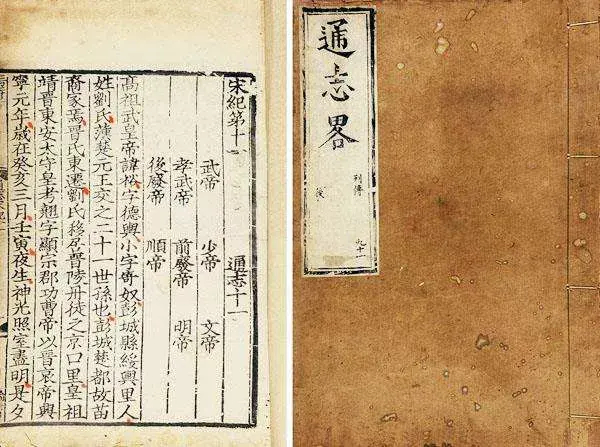 宋紀第十一 通志十一
武帝 少帝 文帝
孝武帝 前廢帝 明帝
後廢帝 順帝
高祖武皇帝諱裕字德輿小字寄奴彭城縣綏輿里人
姓劉氏漢楚元王交之二十一世孫也彭城楚都故苗
裔家焉晉氏東遷劉氏移居晉陵丹徒之京口里皇祖
靖晉東安太守皇考翹字顯宗郡功曹帝以晉哀帝興
寧元年歲在癸亥三月壬寅夜生神光照室盡明是夕
通志畧
列傳 九十一
後